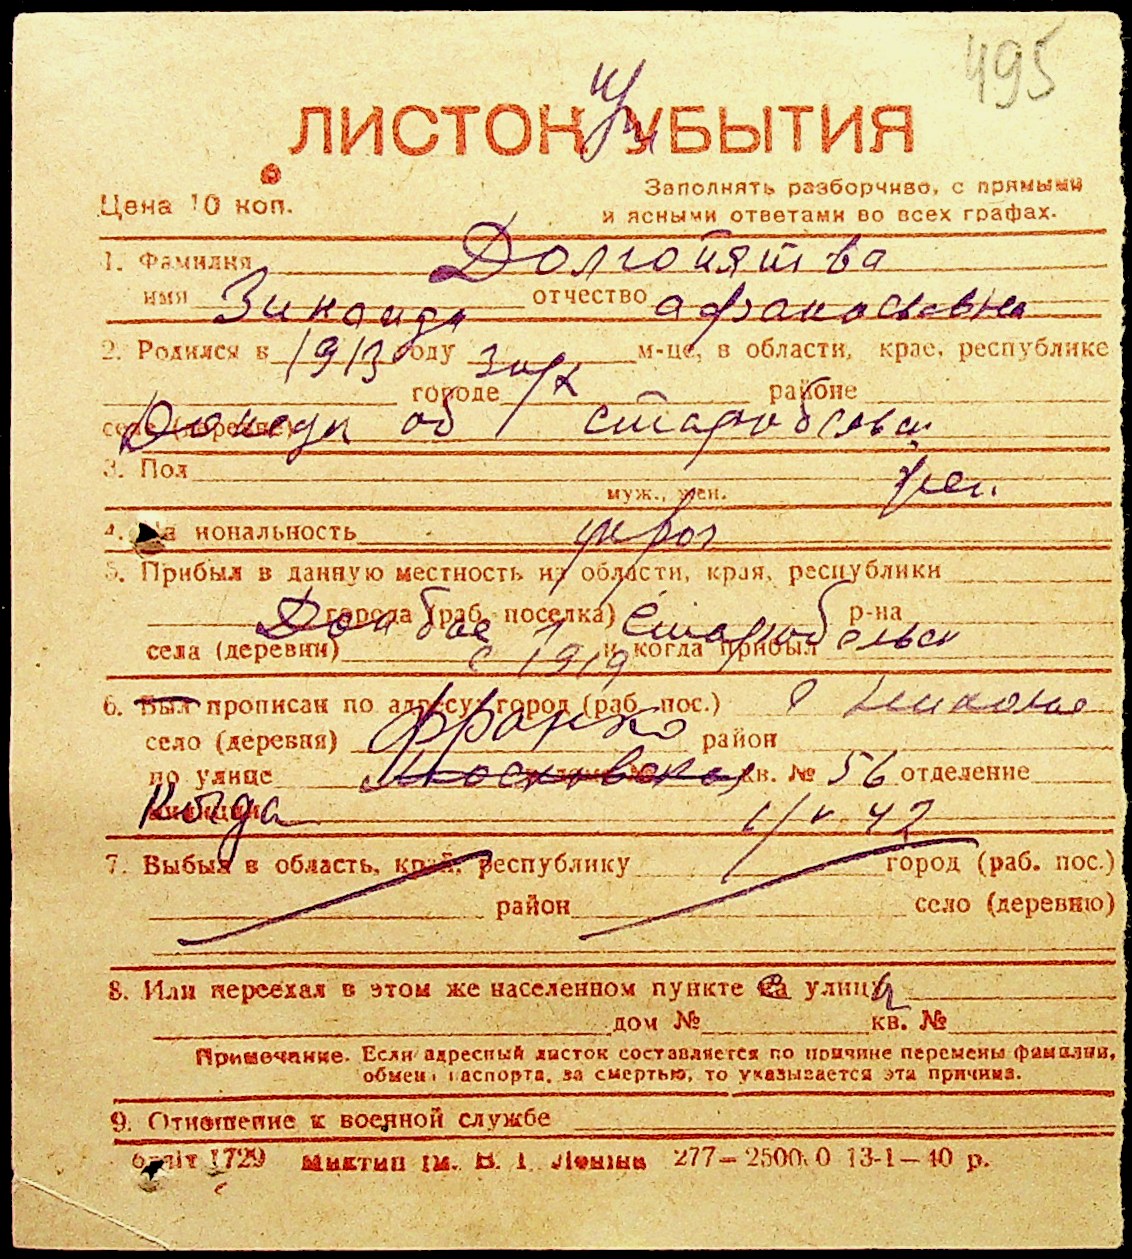 495
ЛИСТОК УБЫТИЯ
Цена 10 коп.
Заполнять разборчиво, с прямыми
и ясными ответами во всех графах.
1. Фамилия Долгопятва
имя Зинаида отчество афанасьевна
2. Родился в 1913 году м-це, в области, крае, республике
городе районе
села (деревне) об старобельск
3. Пол жен.
муж., жен.
4. Национальность укр
5. Прибыл в данную местность из области, края, республики
города (раб. поселка) Старобельск р-на
села (деревни) с 1919 и когда прибыл
6. Был прописан по адресу: город (раб. пос.)
село (деревня) Франко район
по улице Московская кв. № 56 отделение
милиции Когда 42
7. Выбыл в область, край, республику город (раб. пос.)
район село (деревню)
8. Или переехал в этом же населенном пункте на улицу
дом № кв. №
Примечание. Если адресный листок составляется по причине перемены фамилии,
обмена паспорта, за смертью, то указывается эта причина.
9. Отношение к военной службе
1729 Миктип ім. В. І. Леніна 277—2500.0 13-1—40 р.